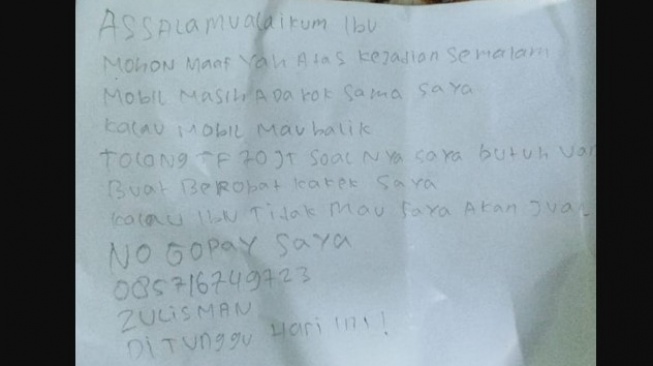 ASSALAMUALAIKUM IBU
MOHON MAAF YAH ATAS KEJADIAN SEMALAM
MOBIL MASIH ADA KOK SAMA SAYA
KALAU MOBIL MAU BALIK
TOLONG TF 70 JT SOALNYA SAYA BUTUH
BUAT BEROBAT KAKEK SAYA
KALAU IBU TIDAK MAU SAYA AKAN JUAL
NO GOPAY SAYA
085716749723
ZULISMAN
DITUNGGU HARI INI!